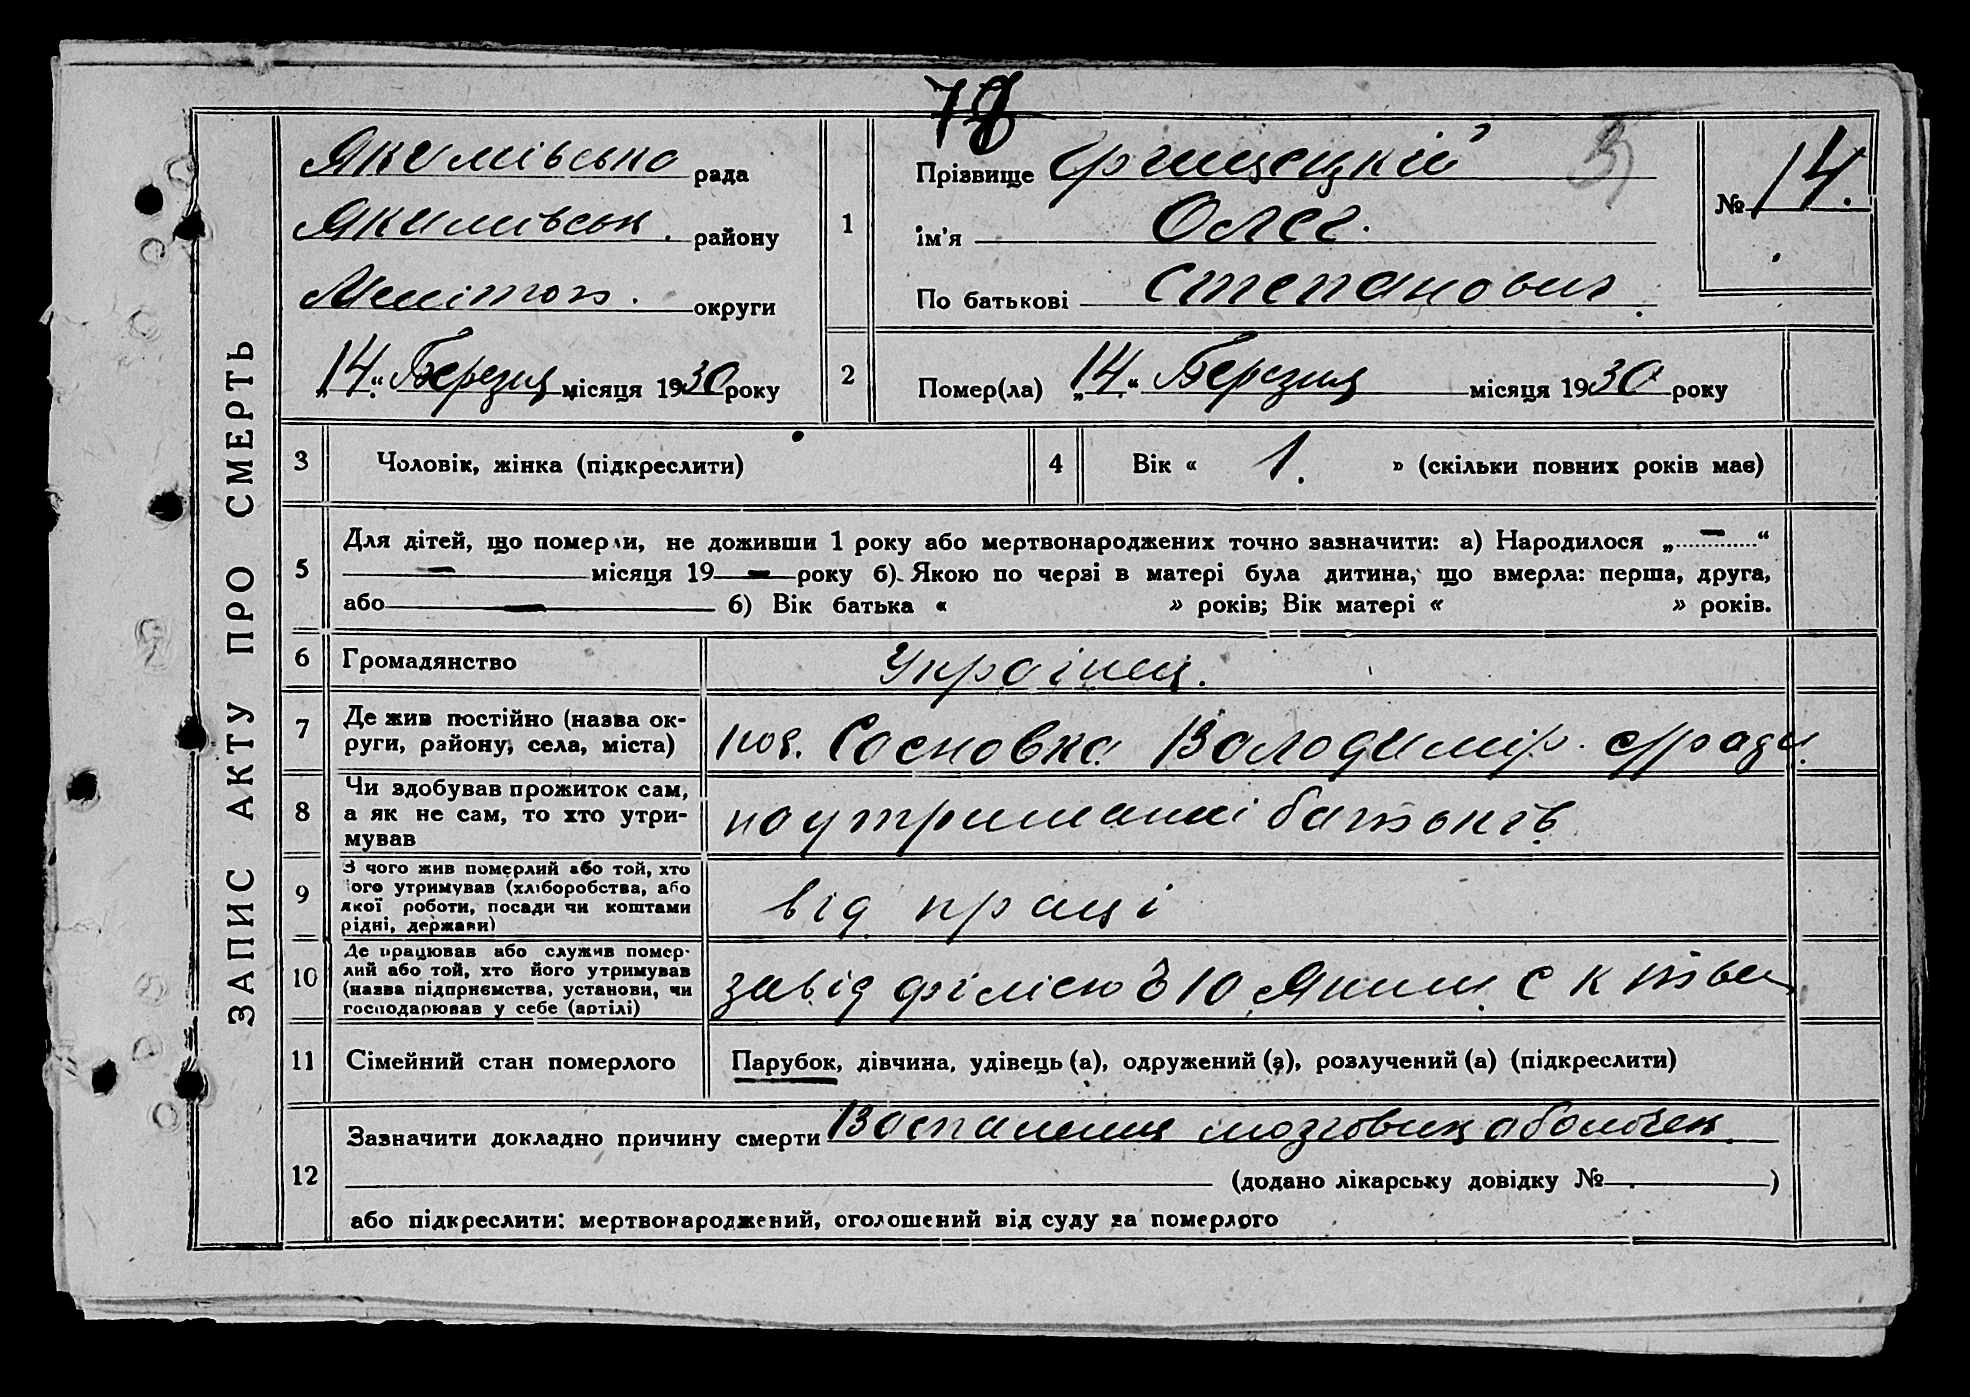 78
ЗАПИС АКТУ ПРО СМЕРТЬ
Якимівська рада
Якимівськ. району
Мелітоп. округи
„14“ Березня місяця 1930 року
1
Прізвище
ім'я Олег.
По батькові Степанович
№ 14.
2
Помер(ла) „14“ Березня місяця 1930 року
3 Чоловік, жінка (підкреслити)
4 Вік « 1. » (скільки повних років має)
5
Для дітей, що померли, не доживши 1 року або мертвонароджених точно зазначити: а) Народилося „ – “
– місяця 19 – року б) Якою по черзі в матері була дитина, що вмерла: перша, друга,
або – б) Вік батька « » років; Вік матері « » років.
6 Громадянство Українец.
7 Де жив постійно (назва ок-
руги, району, села, міста) пос. Сосновка Володимир. с/ради.
8 Чи здобував прожиток сам,
а як не сам, то хто утри-
мував на утриманні батьків
9 З чого жив померлий або той, хто
його утримував (хліборобства, або
якої роботи, посади чи коштами
рідні, держави) від праці
10 Де працював або служив помер-
лий або той, хто його утримував
(назва підприємства, установи, чи
господарював у себе (артілі) завід філією 10 Яким. С К
11 Сімейний стан померлого Парубок, дівчина, удівець (а), одружений (а), розлучений (а) (підкреслити)
12
Зазначити докладно причину смерти Воспаления мозговых оболочек.
(додано лікарську довідку № )
або підкреслити: мертвонароджений, оголошений від суду за померлого